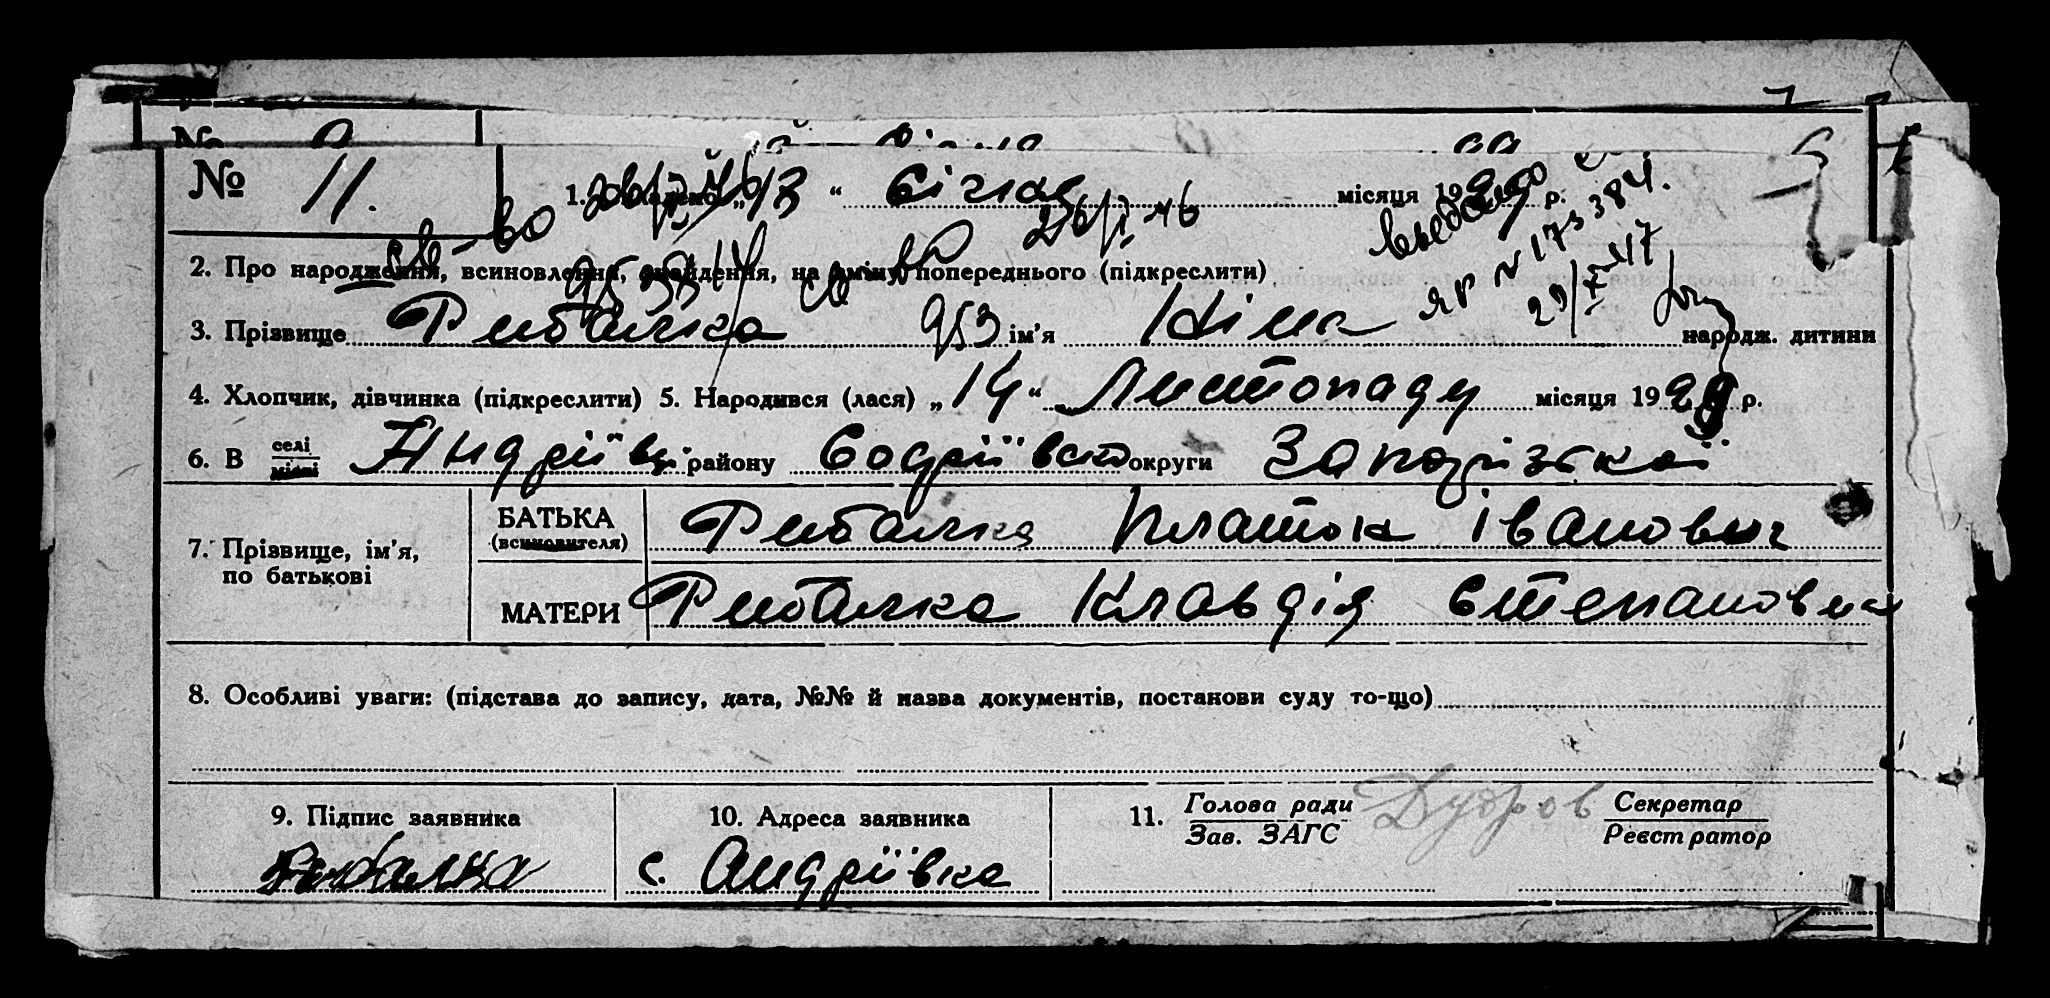 № 11.
1. Складено „13“ Січня місяця 1930 р.
св-во 26/I-46
св-во 26/I-46
953
ЯР № 173384.
29/X-47
2. Про народження, всиновлення, знайдення, на зміну попереднього (підкреслити)
3. Прізвище Рибалка ім’я Ніна народж. дитини
4. Хлопчик, дівчинка (підкреслити) 5. Народився (лася) „14“ Листопаду місяця 1929 р.
6. В селі/місті Андріївці району Андріївсько округи Запорізької
7. Прізвище, ім’я, по батькові
БАТЬКА (всиновителя) Рибалка Платон Іванович
МАТЕРИ Рибалка Клавдія Степановна
8. Особливі уваги: (підстава до запису, дата, №№ й назва документів, постанови суду то-що)
9. Підпис заявника 10. Адреса заявника 11. Голова ради/Зав. ЗАГС Секретар/Реєстратор
Рибалка с. Андріївка